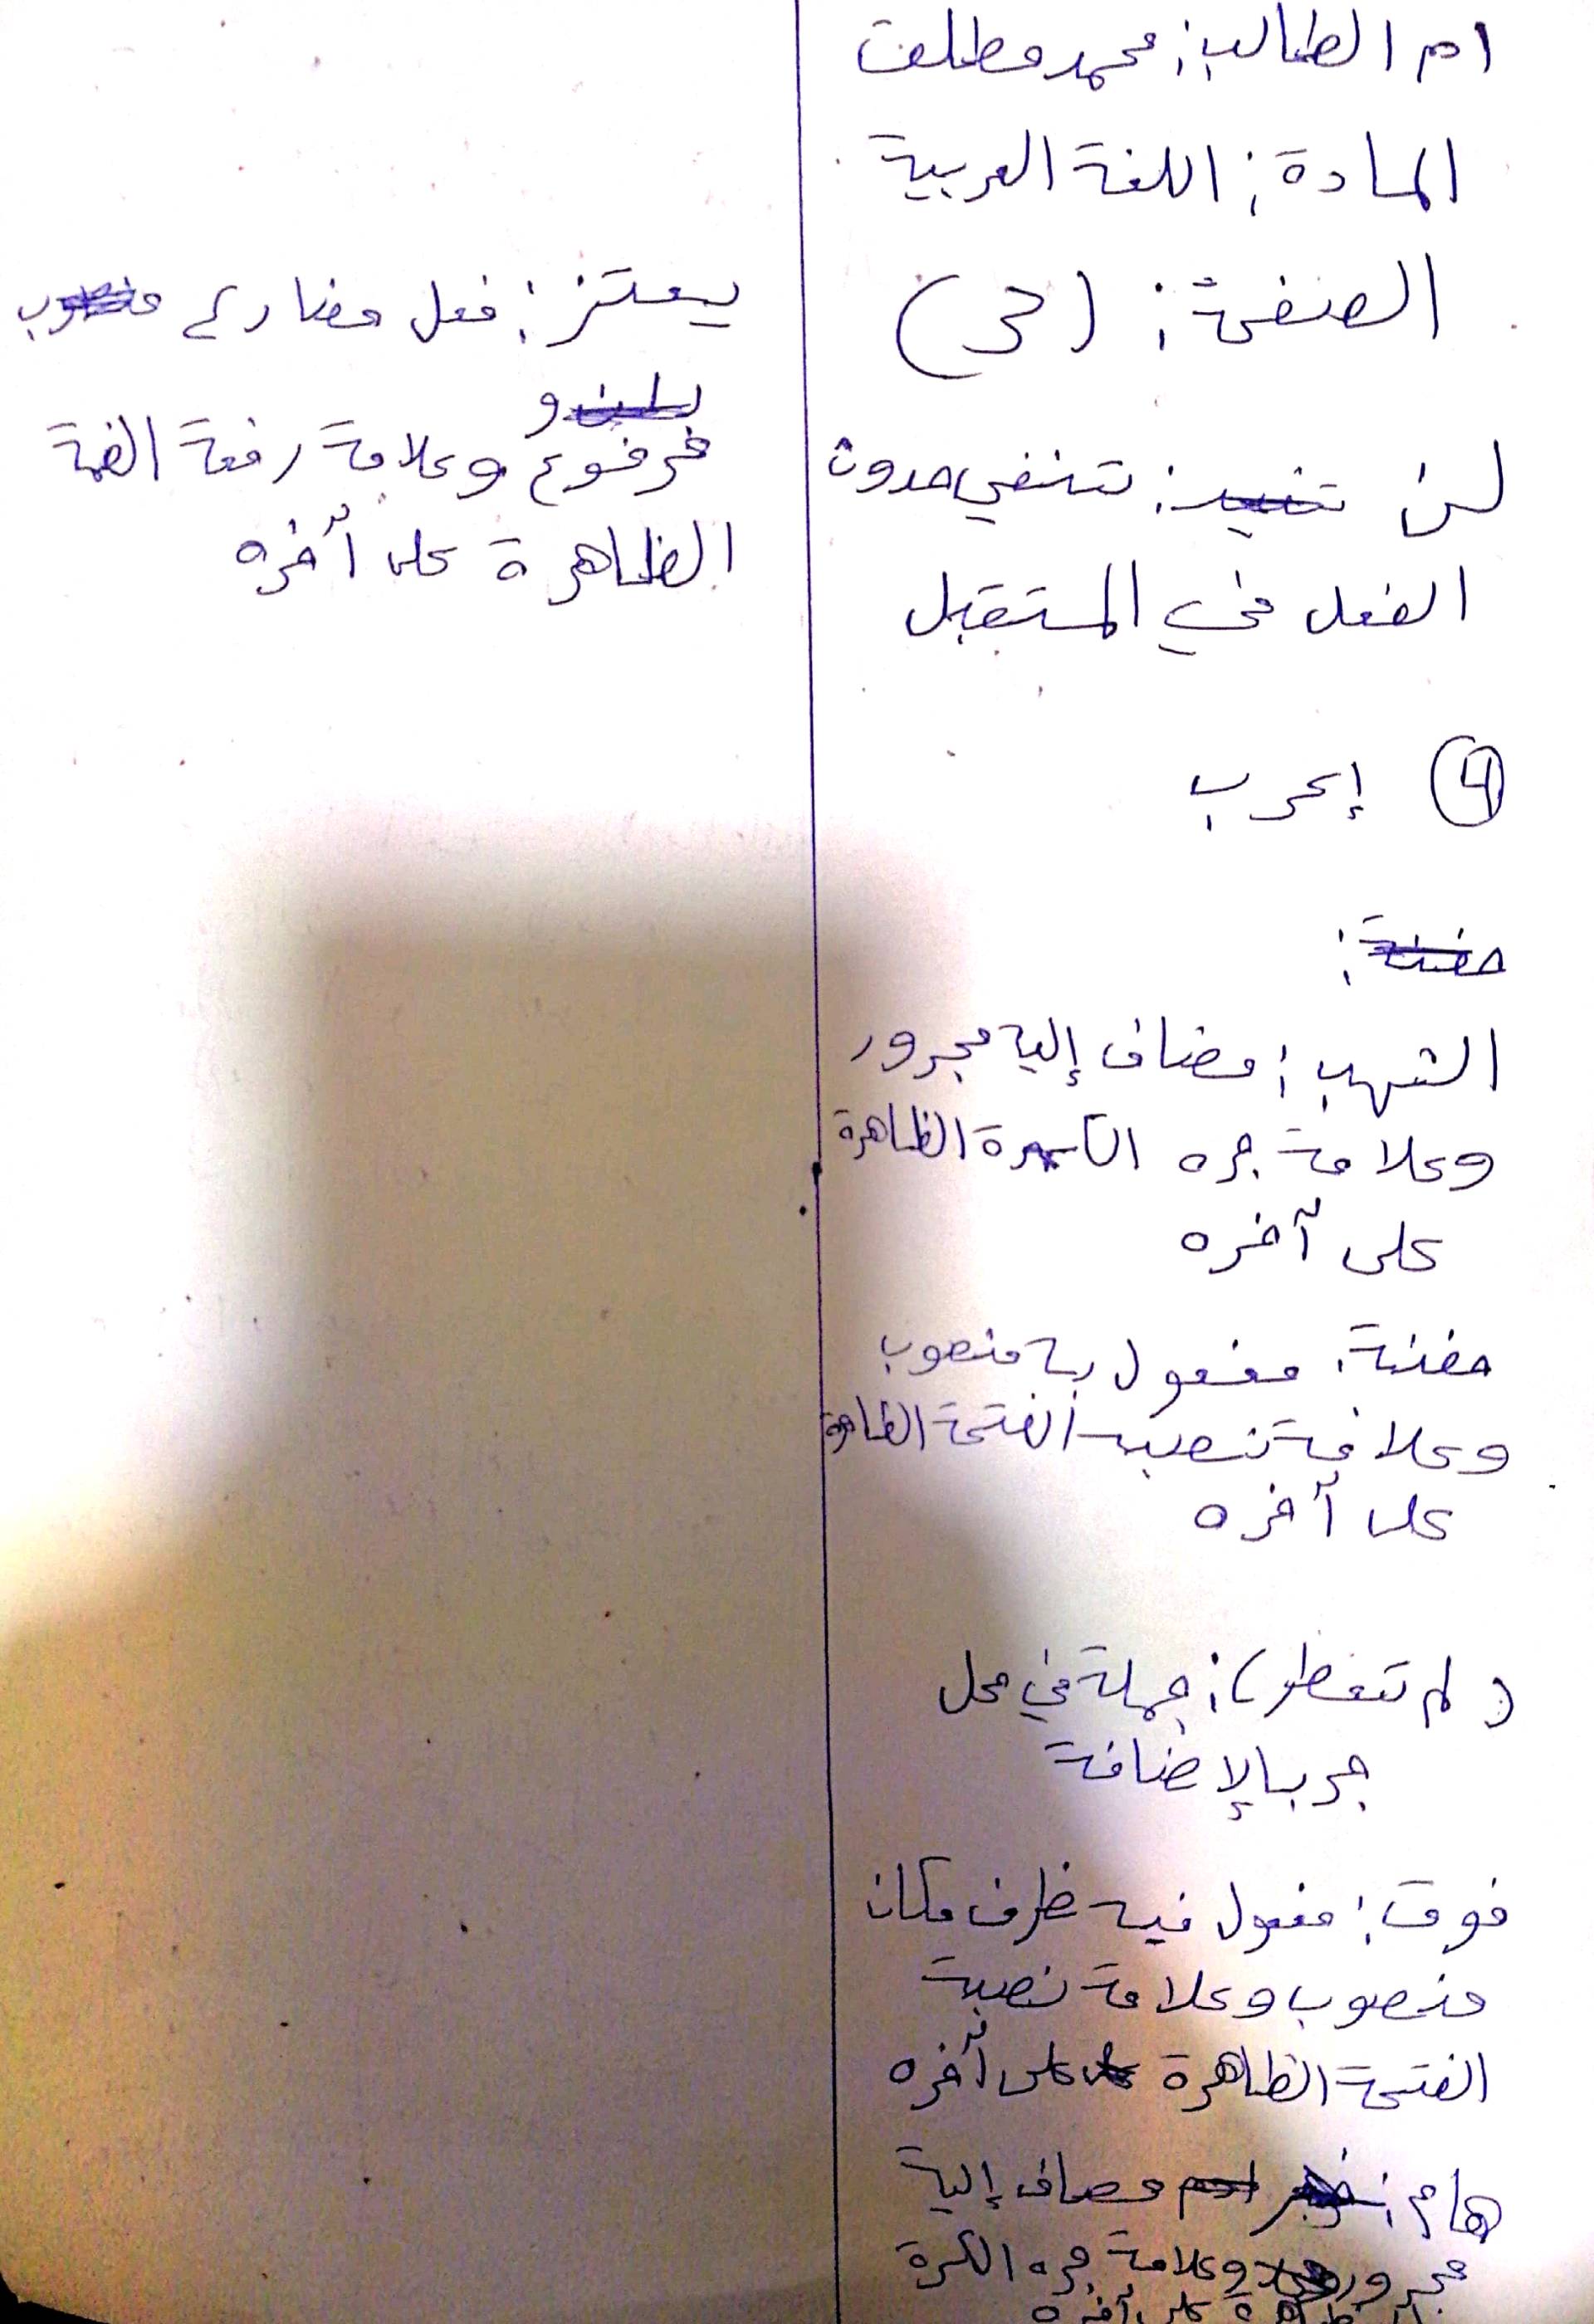 ام الطالب: محمد مطلق
المادة: اللغة العربية
الصفحة: (3)
لن تفيد: تنفي حدوث
الفعل في المستقبل
④ إعرب
حفنة:
الشهب: مضاف إليه مجرور
وعلامة جره الكسرة الظاهرة
على آخره
حفنة: مفعول به منصوب
وعلامة نصبه الفتحة الظاهرة
على آخره
(لم تتفطر): جملة في محل
جر بالإضافة
فوق: مفعول فيه ظرف مكان
منصوب وعلامة نصبة
الفتحة الظاهرة على آخره
هام: مصاف إلية
مجرور وعلامة جره الكسرة
الظاهرة على آخره
يعتز: فعل مضارع منصوب
بلن و
مرفوع وعلامة رفعة الضمة
الظاهرة على آخره